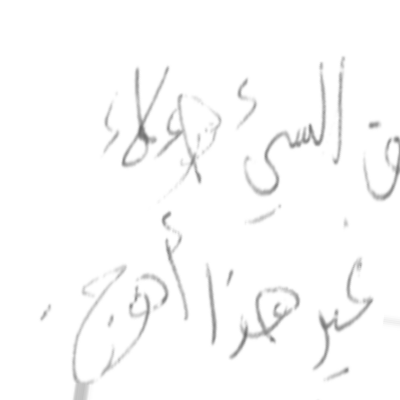 السيئ هؤلاء
غير هذا أهوج.